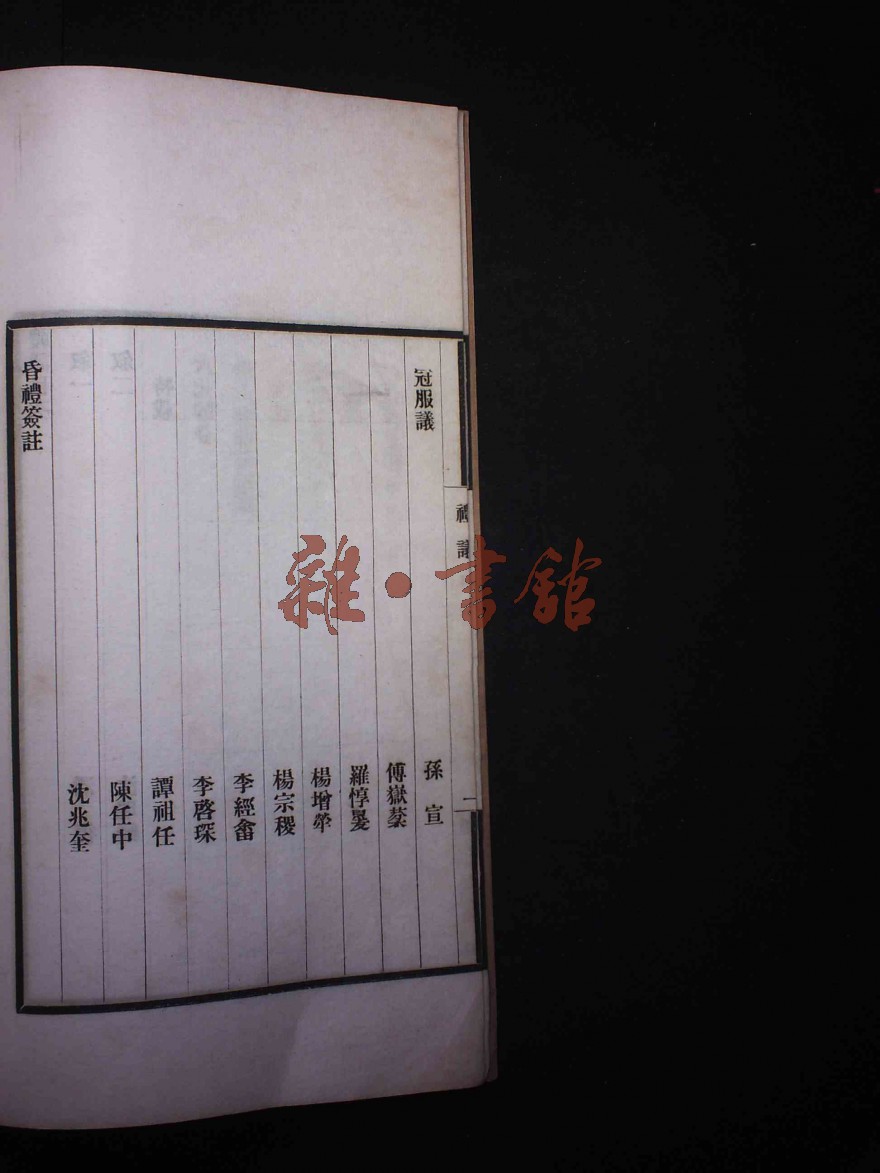 禮議
二
冠服議
孫宣
傅嶽棻
羅惇㬊
楊增犖
楊宗稷
李經畬
李啓琛
譚祖任
陳任中
沈兆奎
昏禮簽註
雜·書館